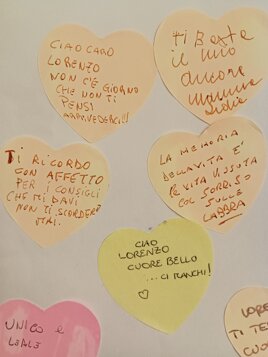 CIAO CARO
LORENZO
NON C'È GIORNO
CHE NON TI
PENSI
ARRIVEDERCI!!
Ti Basta
il mio
amore
mamma
TI RICORDO
CON AFFETTO
PER I CONSIGLI
CHE MI DAVI
NON TI SCORDERÒ
MAI.
LA MEMORIA
DELLA VITA È
LA VITA VISSUTA
COL SORRISO
SULLE
LABBRA
CIAO
LORENZO
CUORE BELLO
...CI MANCHI!
UNICO e
LEALE
TI TE
CUO